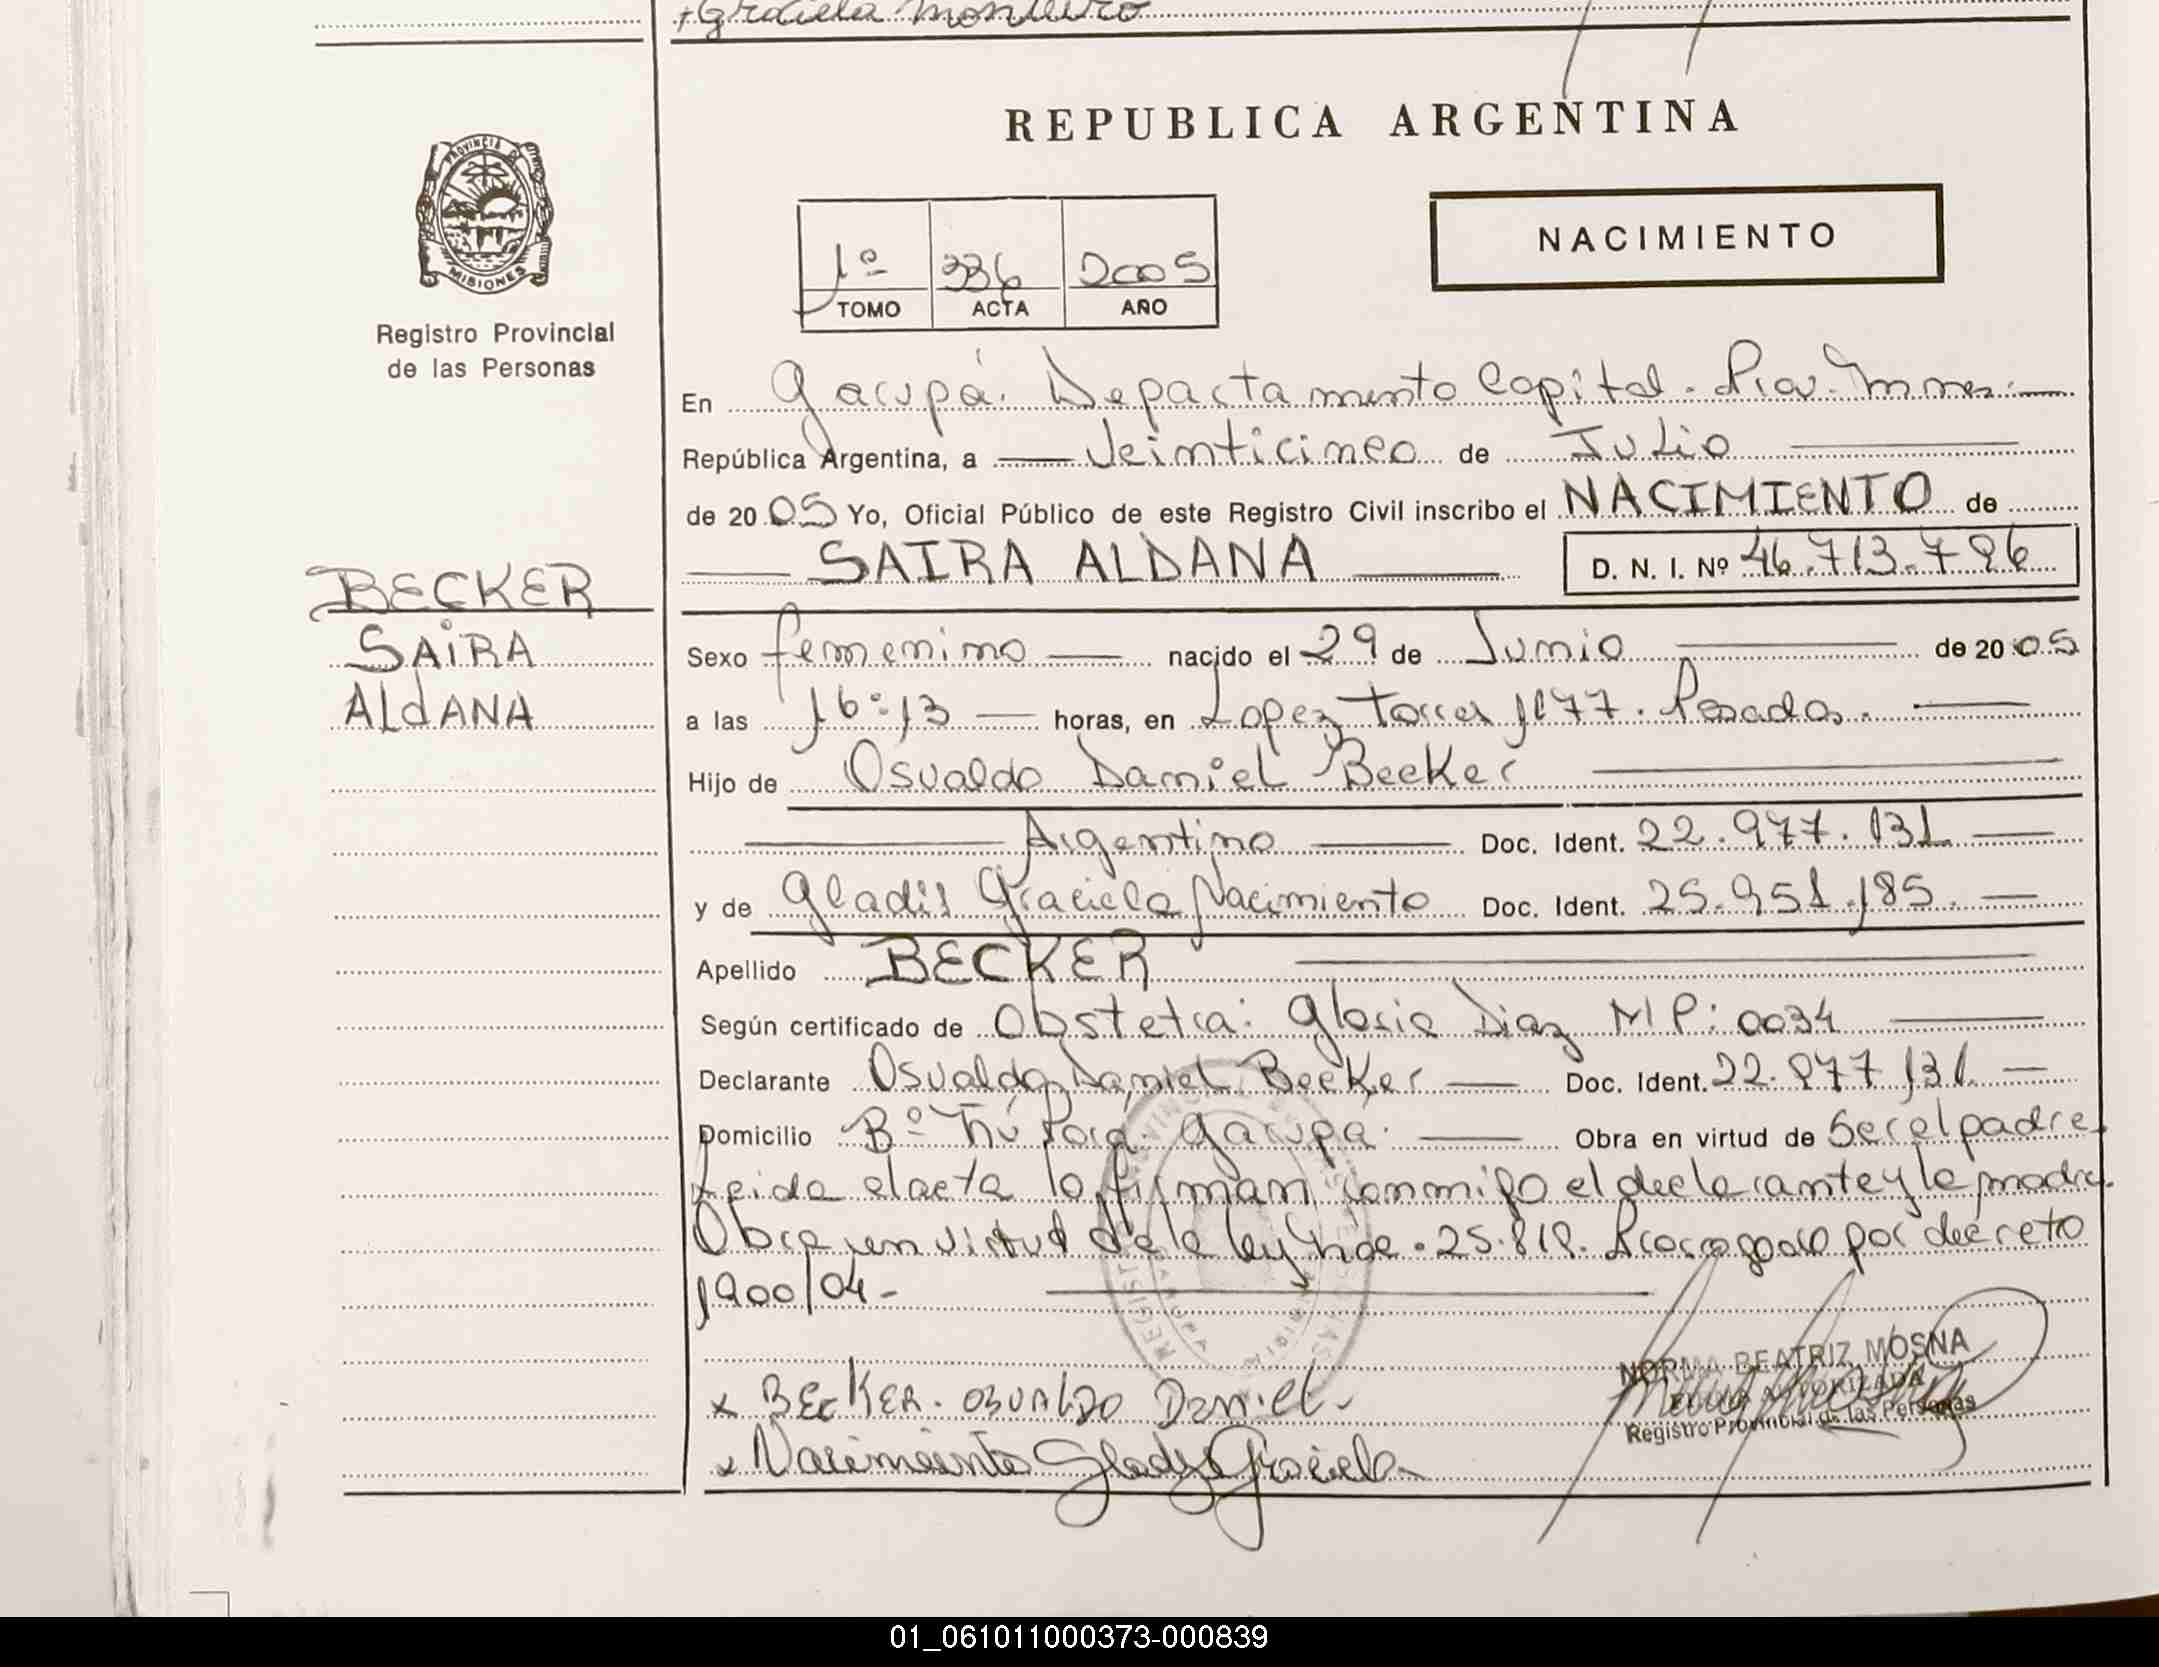 +Graciela Monteiro
REPUBLICA ARGENTINA
PROVINCIA DE
MISIONES
Registro Provincial
de las Personas
NACIMIENTO
1º 336 2005
TOMO ACTA AÑO
En Garupá. Departamento Capital. Prov. Mnes.
República Argentina, a Veinticinco de Julio
de 2005 Yo, Oficial Público de este Registro Civil inscribo el NACIMIENTO de
SAIRA ALDANA D. N. I. Nº 46.713.796
BECKER
SAIRA
ALDANA
Sexo femenino nacido el 29 de Junio de 2005
a las 16:13 horas, en Lopez Torres 1177. Posadas.
Hijo de Osvaldo Daniel Becker
Argentino Doc. Ident. 22.977.131
y de Gladis Graciela Nacimiento Doc. Ident. 25.951.185.
Apellido BECKER
Según certificado de Obstetra: Gloria Diaz MP: 0034
Declarante Osvaldo Daniel Becker Doc. Ident. 22.977.131.
Domicilio Bº Ñú Porá. Garupá. Obra en virtud de Ser el padre.
Leida el acta la firman conmigo el declarante y la madre.
Obra en virtud de la ley 25.819. Prorrogado por decreto
1900/04-
x BECKER. OSVALDO DANIEL-
x Nacimiento Gladys Graciela
NORMA BEATRIZ MOSNA
AUTORIZADA
Registro Provincial de las Personas
01_061011000373-000839